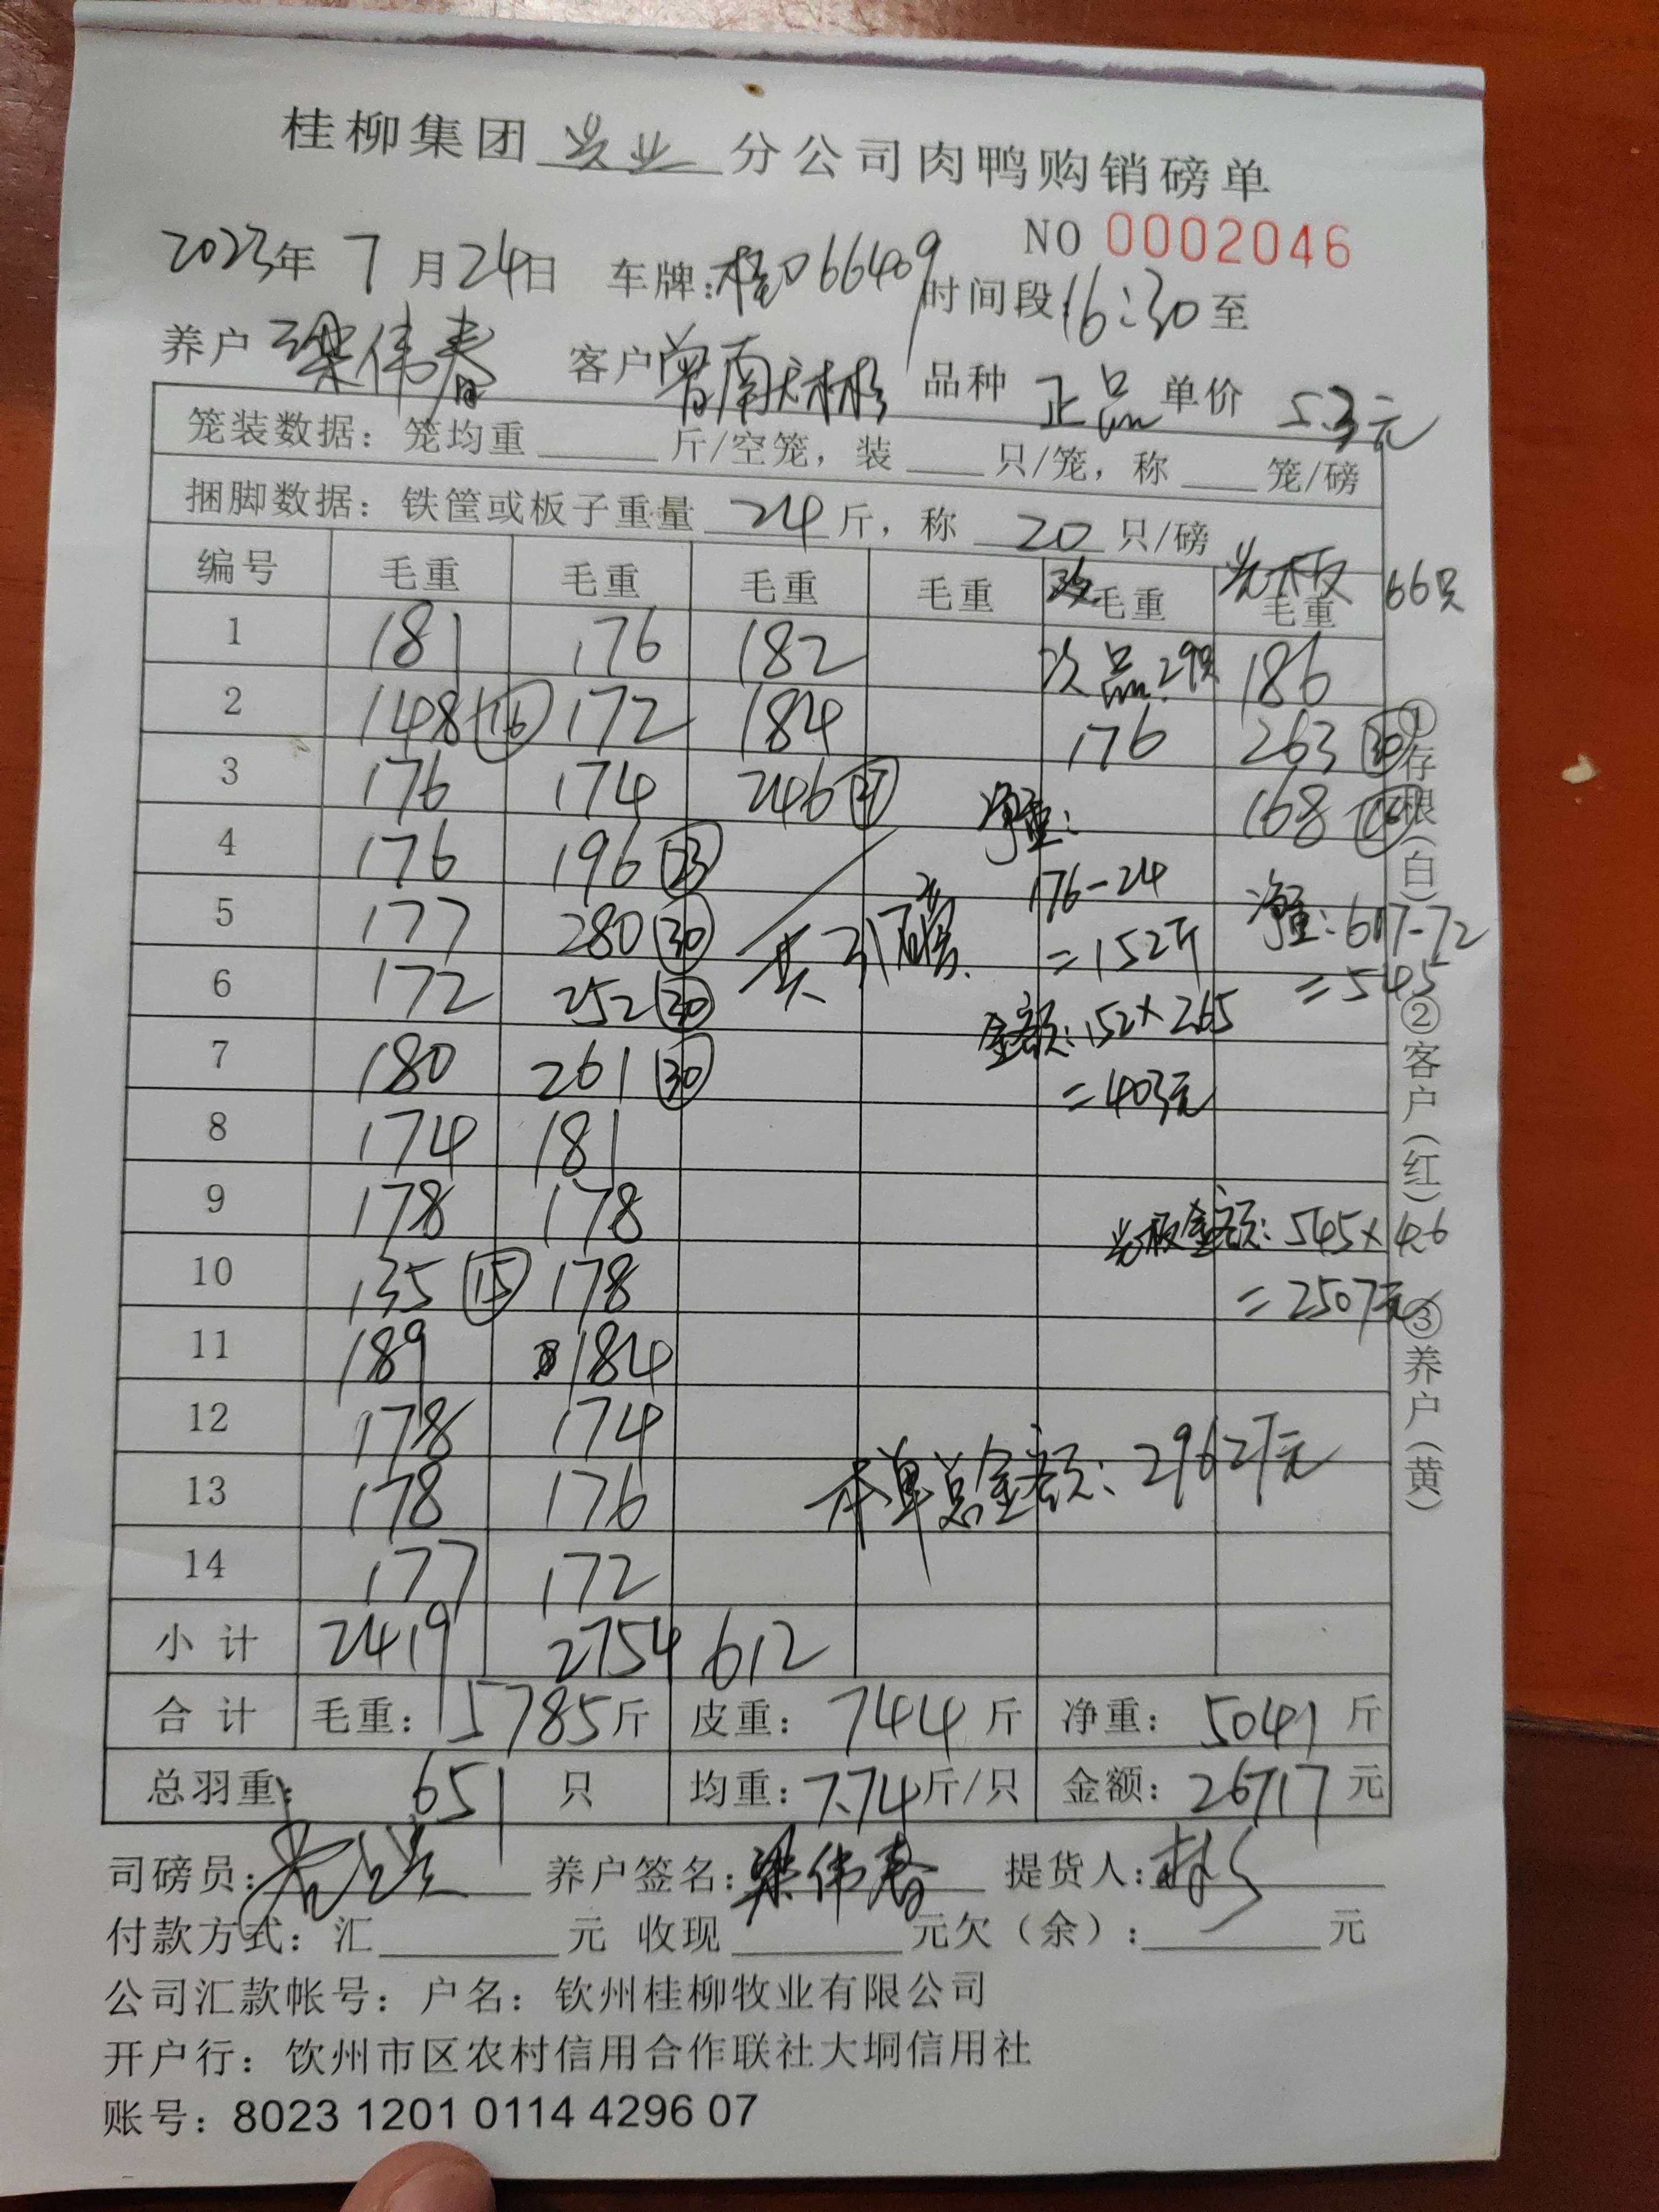 桂柳集团 兴业 分公司肉鸭购销磅单
NO 0002046
2023年 7 月 24日 车牌:桂D66409 时间段16:30至
养户 梁伟春 客户 曾南 品种 正品 单价 5.3元
笼装数据：笼均重 斤/空笼，装 只/笼，称 笼/磅
捆脚数据：铁筐或板子重量 24 斤，称 20 只/磅
编号 毛重 毛重 毛重 毛重 毛重 光板 毛重 66只
1 181 176 182 次品29只 186
2 148 16 172 184 176 263 30
3 176 174 246 27 净重: 168
4 176 196 23 176-24 净重:617-72
5 177 280 30 共31磅 =152斤 =545
6 172 252 30 金额:152×2.65
7 180 261 30 =403元
8 174 181
9 178 178 光板金额:545×4.6
10 135 15 178 =2507元
11 189 184
12 178 174 本单总金额:29627元
13 178 176
14 177 172
小计 2419 2754 612
合计 毛重:5785斤 皮重:744斤 净重:5041斤
总羽重: 651 只 均重:7.74斤/只 金额:26717元
司磅员: 养户签名:梁伟春 提货人:彬
付款方式：汇 元 收现 元欠（余）: 元
公司汇款帐号：户名：钦州桂柳牧业有限公司
开户行：饮州市区农村信用合作联社大垌信用社
账号：8023 1201 0114 4296 07
①存根(白)②客户(红)③养户(黄)